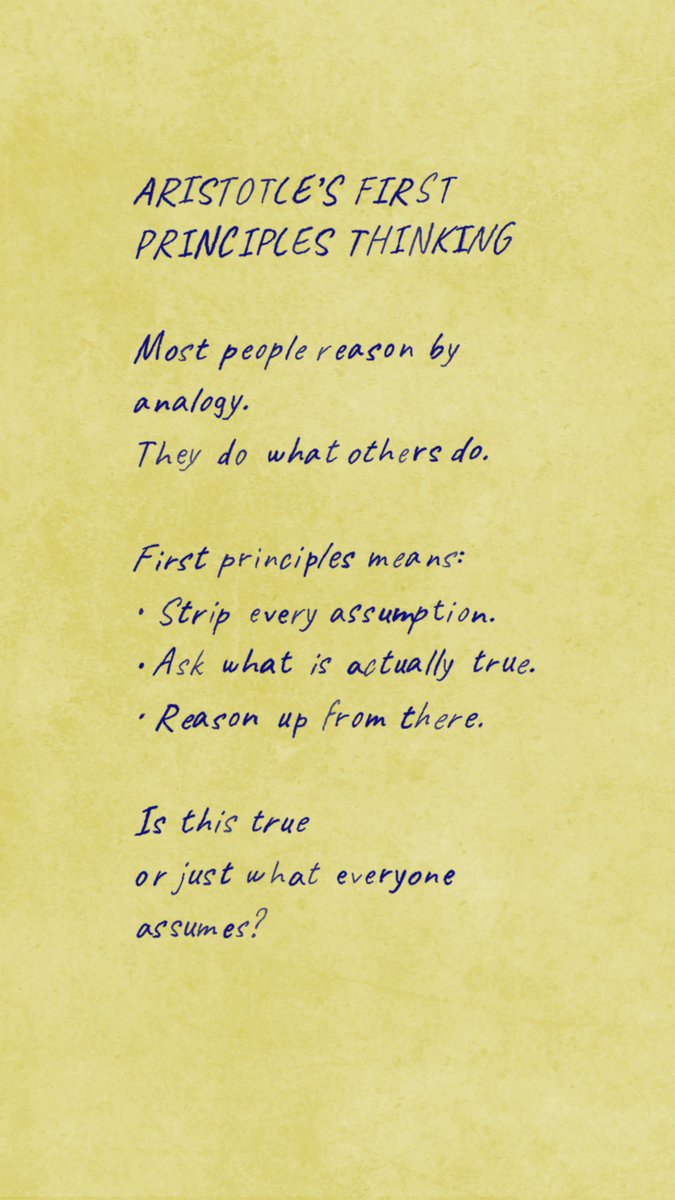 ARISTOTLE'S FIRST
PRINCIPLES THINKING
Most people reason by
analogy.
They do what others do.
First principles means:
• Strip every assumption.
• Ask what is actually true.
• Reason up from there.
Is this true
or just what everyone
assumes?